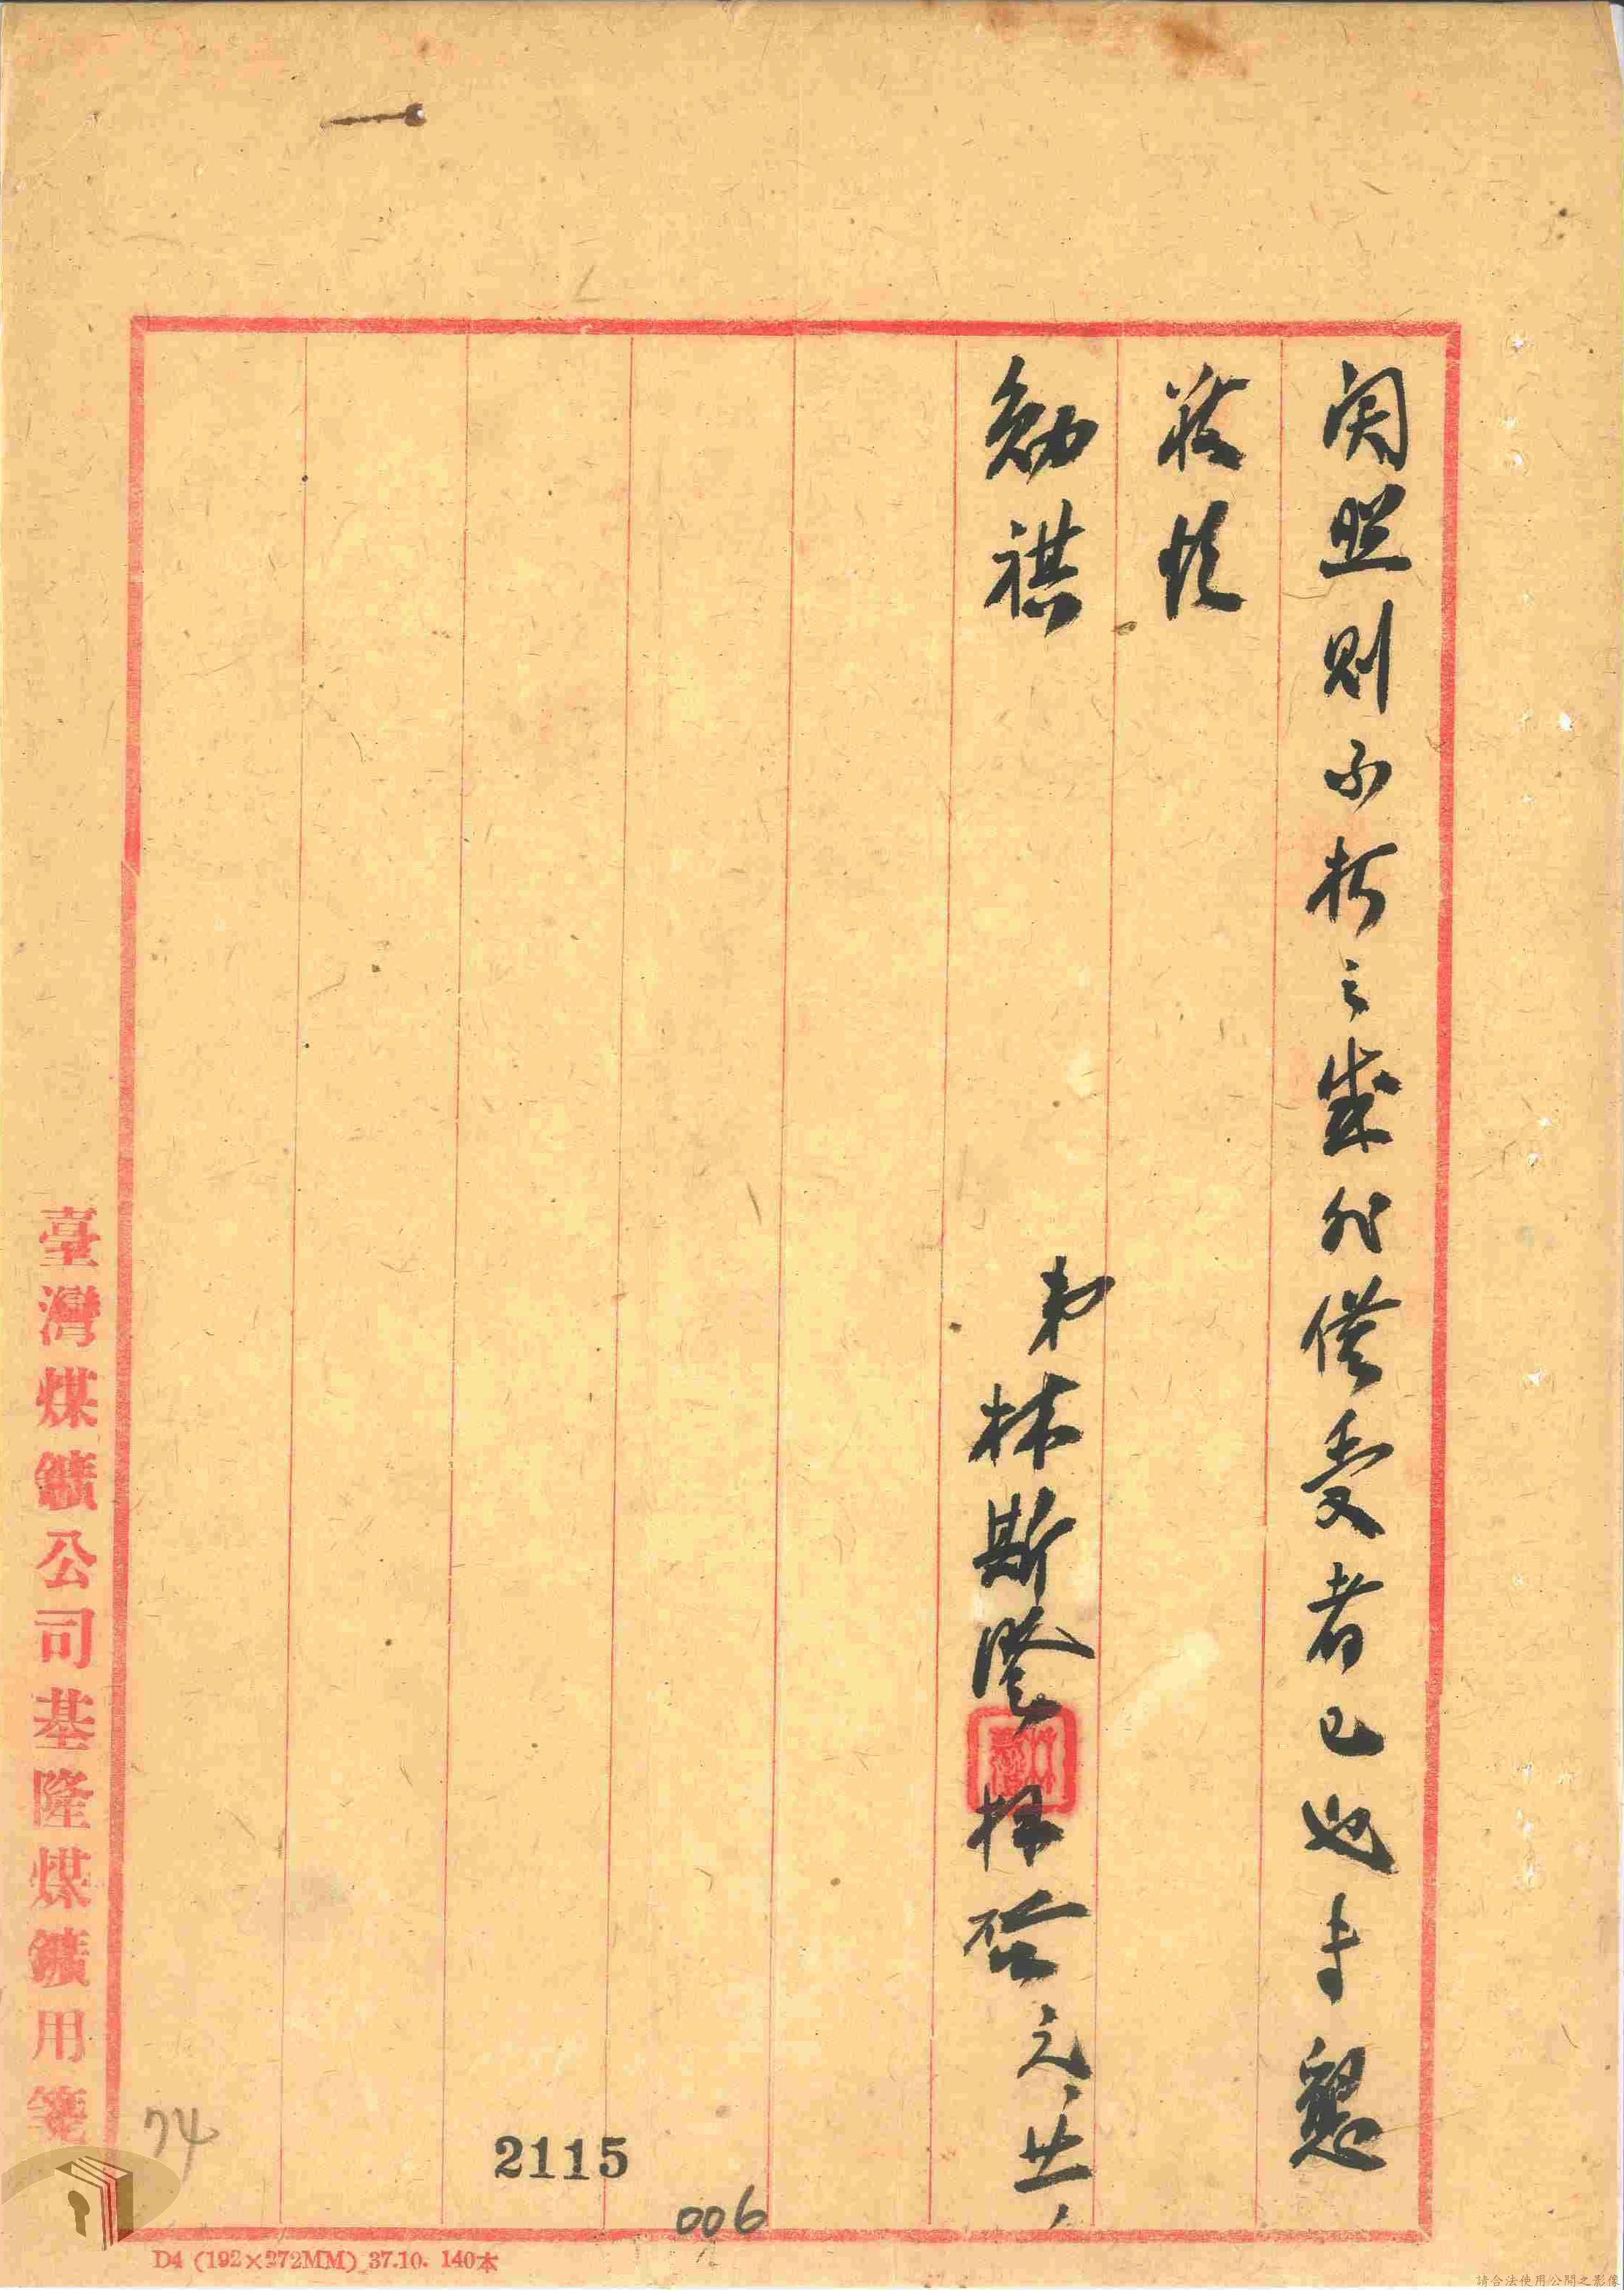 関照則不杉之感外僅受者已也专懇
荷頌
勛祺
弟林斯澄拜啓 元、廿、
臺灣煤鑛公司基隆煤鑛用箋
74
2115
006
D4 (192×272MM) 37.10. 140本
請合法使用公開之影像